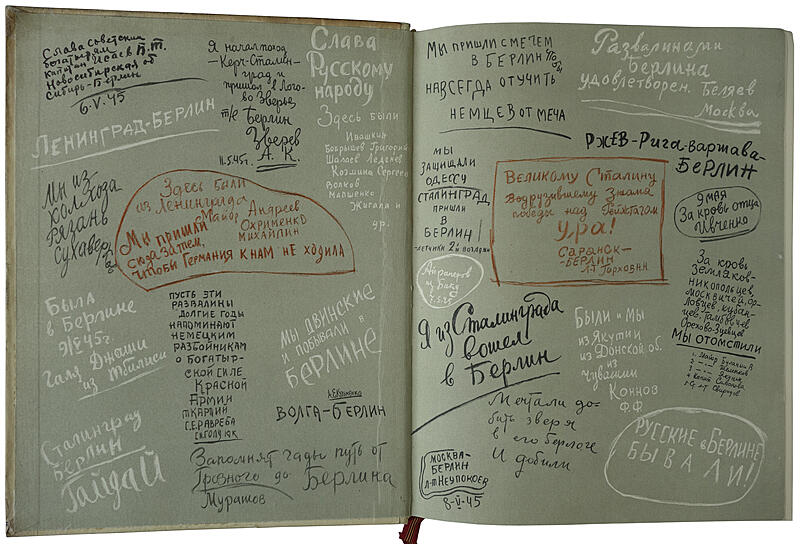 Слава советским
богатырям
капитан Исаев П.Т.
Новосибирская об
Сибирь-Берлин
6-V-45
Я начал поход
-Керч-Сталин-
град и
пришол в Лого-
во Зверье,
т/е Берлин
Зверев
А. К.
11.5.45г.
Слава
Русскому
народу
Здесь были
Ивашкин
Бобрышев Григорий
Шалаев
Козмина Сергеев
Волков
Малшенко
Жигала и
др.
Ленинград-Берлин
Мы из-
колхоза
Рязань
Сухавер
Здесь были
из Ленинграда
Майор Андреев
Охрименко
Михайлин
Мы пришли
сюда затем,
чтоби Германия к нам не ходила
Была
в Берлине
9/V 45г.
Галя Джаши
из Тбилиси
Пусть эти
развалины
долгие годы
напоминают
немецким
разбойникам
о богатыр-
ской силе
Красной
Армии
Мы двинские
и побывали в
Берлине
Волга-Берлин
Сталинград
Берлин
Гайдай
Заполнят гады путь от
Грозного до Берлина
Мурашов
Мы пришли с мечем
в Берлин чтобы
навсегда отучить
немцев от меча
Развалинами
Берлина
удовлетворен. Беляев
Москва
Ржев-Рига-Варшава-
Берлин
Мы
защищали
Одессу
Сталинград
пришли
в
Берлин!
Великому Сталину
водрузившему знамя
победы над Рейхтагом
Ура!
Саранск-
Берлин
Л-т Горховин
9 мая
За кровь отца
Ивченко
Айрапетов
и Баку
Я из Сталинграда
вошел
в Берлин
Были и мы
из Якутии
из Донской об.
из
Чувашии
Коннов
Ф.Ф.
За кровь
земляков-
никопольцев,
москвичей, ор-
ловцев, кубан-
цев, тамбовчев
Орехово-Зуевцев
Мы отомстили
Мечтали до-
бить зверя
в его берлоге
И добили
Москва-
Берлин
Л-т Неупокоев
8-V-45
Русские в Берлине
бывали!